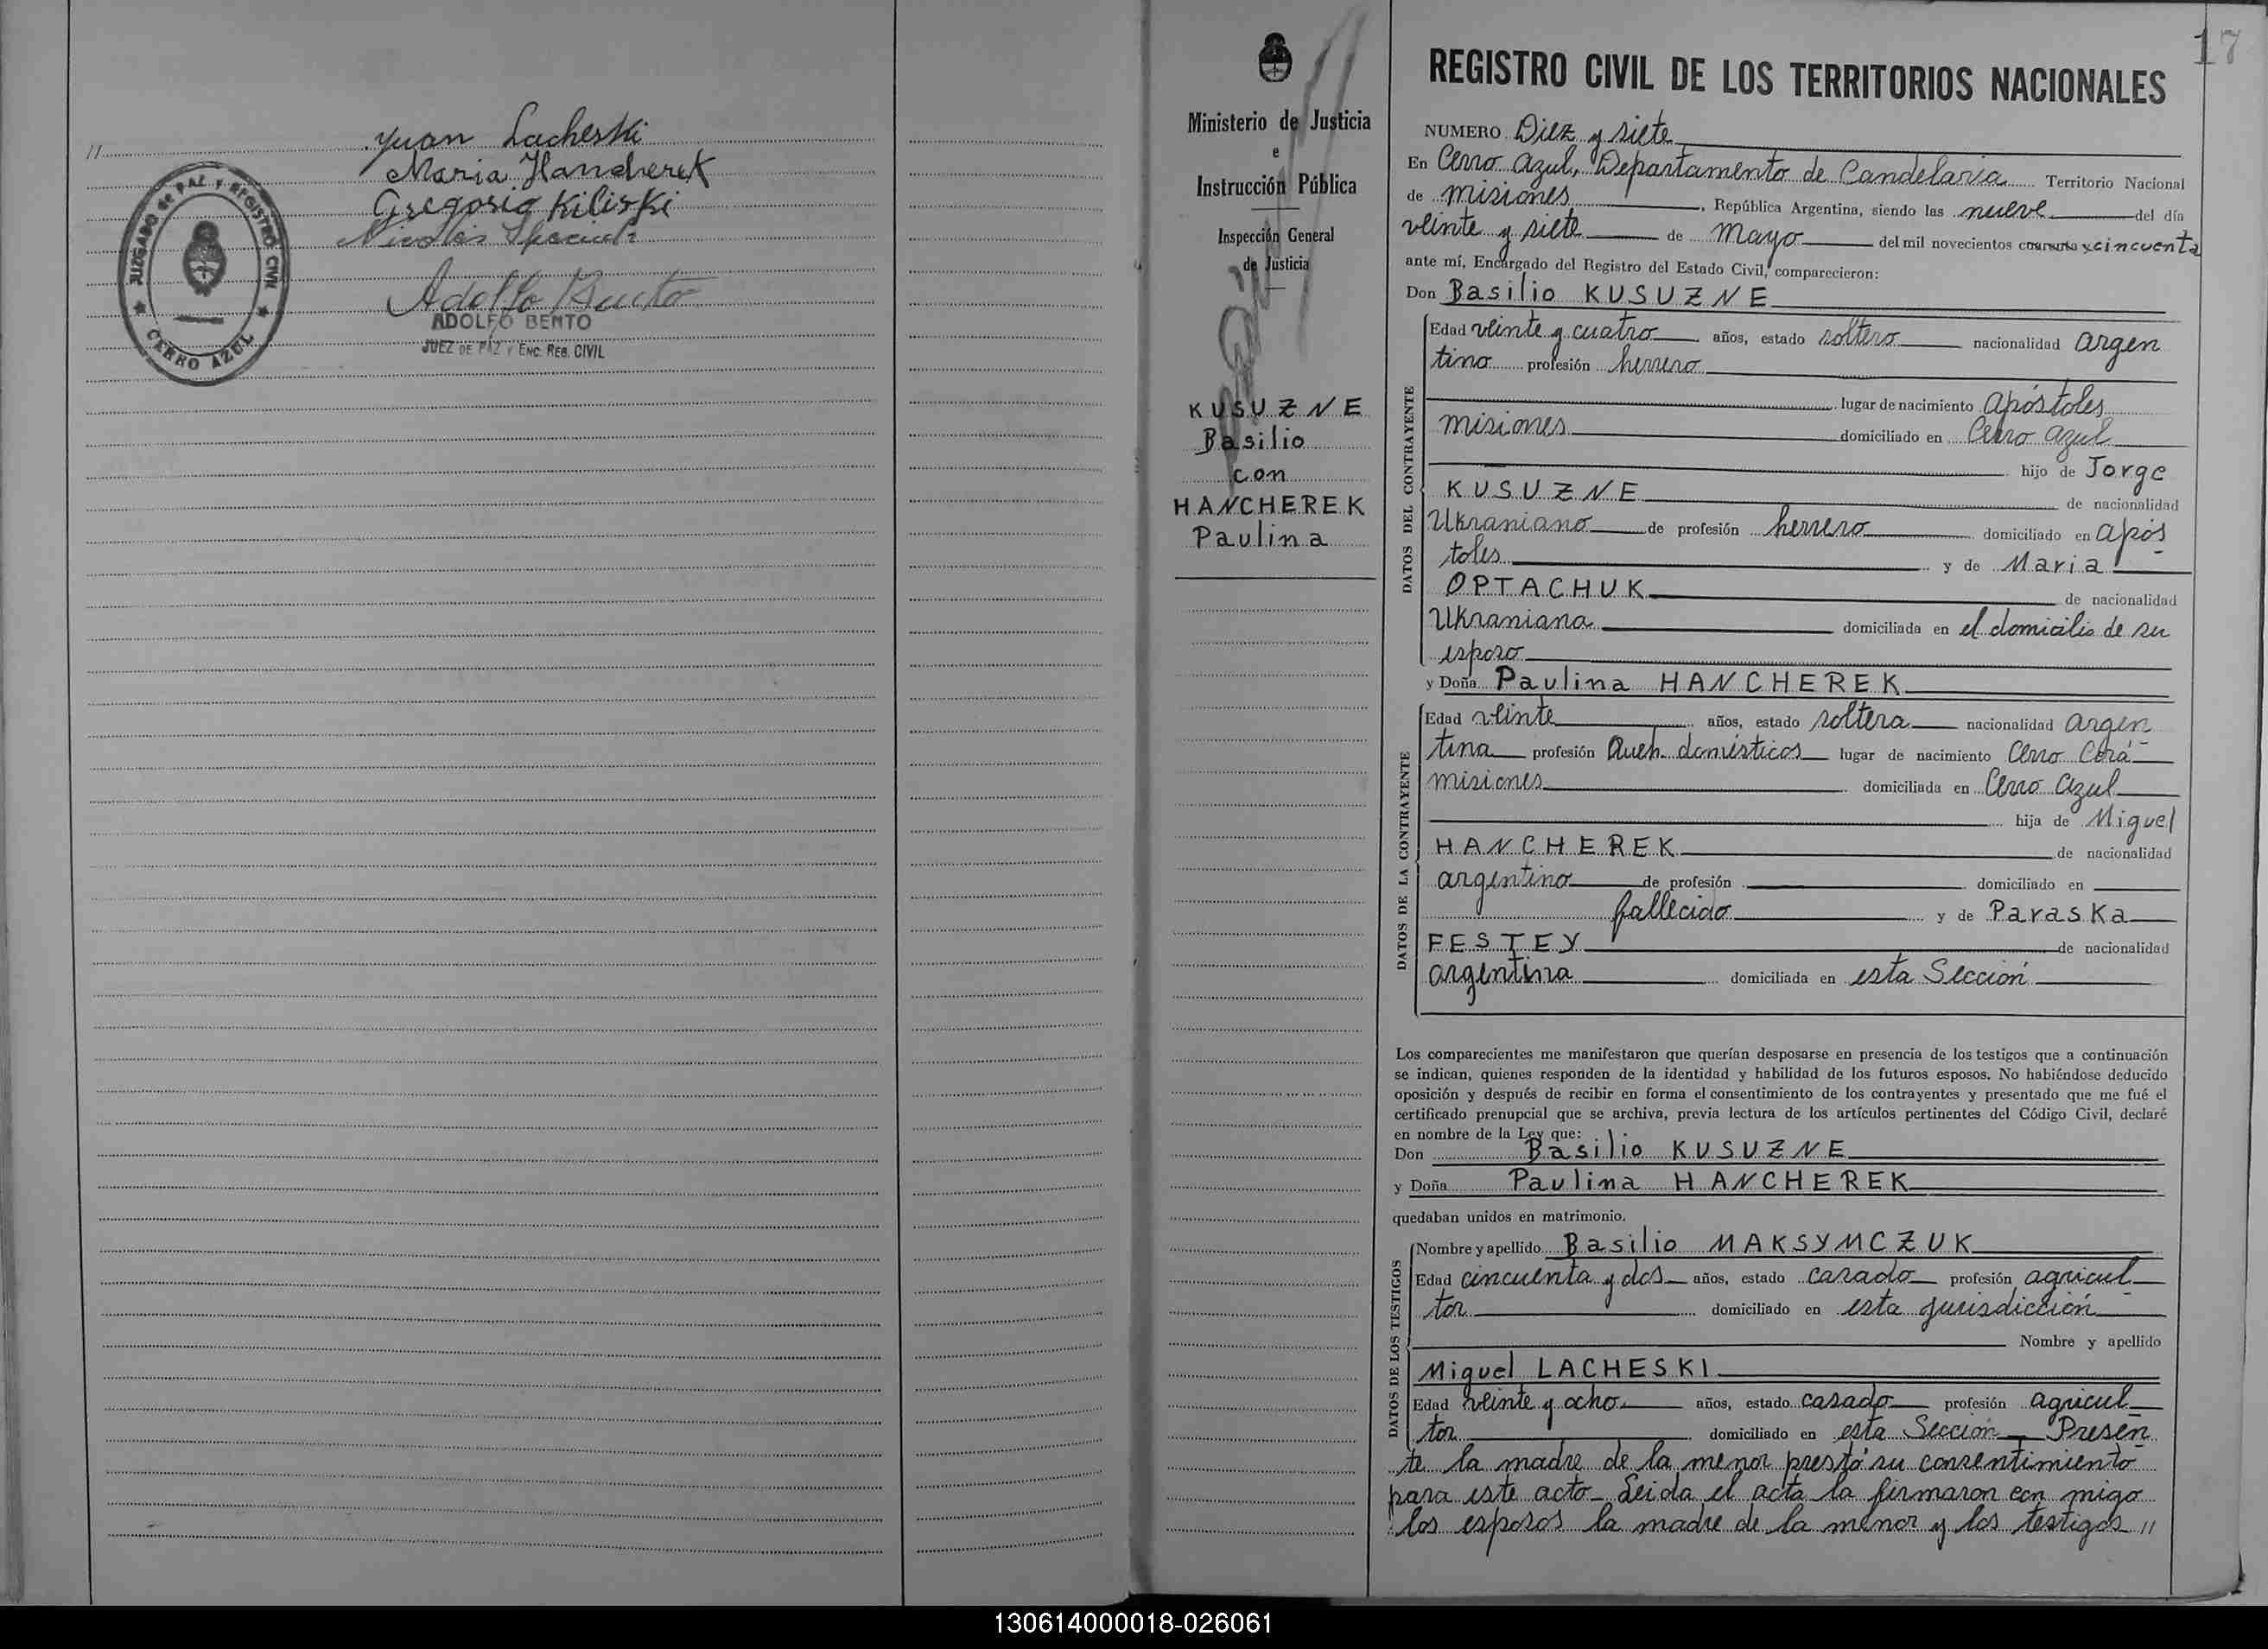 //
Yuan Lacheski
Maria Hancherek
Gregorio Kiliski
Nicolás
JUZGADO de PAZ Y REGISTRO CIVIL
CERRO AZUL
ADOLFO BENTO
JUEZ DE PAZ Y ENC. REG. CIVIL
Ministerio de Justicia
e
Instrucción Pública
Inspección General
de Justicia
KUSUZNE
Basilio
con
HANCHEREK
Paulina
17
REGISTRO CIVIL DE LOS TERRITORIOS NACIONALES
NUMERO Diez y siete
En Cerro Azul, Departamento de Candelaria Territorio Nacional
de Misiones, República Argentina, siendo las nueve del día
veinte y siete de Mayo del mil novecientos cuarenta y cincuenta
ante mí, Encargado del Registro del Estado Civil, comparecieron:
Don Basilio KUSUZNE
DATOS DEL CONTRAYENTE
Edad veinte y cuatro años, estado soltero nacionalidad argen
tino profesión herrero
lugar de nacimiento Apóstoles
Misiones domiciliado en Cerro Azul
hijo de Jorge
KUSUZNE de nacionalidad
Ukraniano de profesión herrero domiciliado en Após
toles y de Maria
OPTACHUK de nacionalidad
Ukraniana domiciliada en el domicilio de su
esposo
y Doña Paulina HANCHEREK
DATOS DE LA CONTRAYENTE
Edad veinte años, estado soltera nacionalidad argen
tina profesión Queh. domésticos lugar de nacimiento Cerro Corá
Misiones domiciliada en Cerro Azul
hija de Miguel
HANCHEREK de nacionalidad
argentino de profesión domiciliado en
fallecido y de Paraska
FESTEY de nacionalidad
argentina domiciliada en esta Sección
Los comparecientes me manifestaron que querían desposarse en presencia de los testigos que a continuación
se indican, quienes responden de la identidad y habilidad de los futuros esposos. No habiéndose deducido
oposición y después de recibir en forma el consentimiento de los contrayentes y presentado que me fué el
certificado prenupcial que se archiva, previa lectura de los artículos pertinentes del Código Civil, declaré
en nombre de la Ley que:
Don Basilio KUSUZNE
y Doña Paulina HANCHEREK
quedaban unidos en matrimonio.
DATOS DE LOS TESTIGOS
Nombre y apellido Basilio MAKSYMCZUK
Edad cincuenta y dos años, estado casado profesión agricul
tor domiciliado en esta jurisdicción
Nombre y apellido
Miguel LACHESKI
Edad veinte y ocho años, estado casado profesión agricul
tor domiciliado en esta Sección Presen
te la madre de la menor prestó su consentimiento
para este acto - Leida el acta la firmaron con migo
los esposos la madre de la menor y los testigos //
130614000018-026061